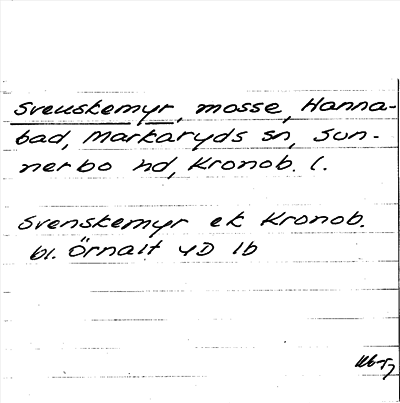 Svenskemyr, mosse, Hanna-
bad, Markaryds sn, Sun-
nerbo hd, Kronob. l.
Svenskemyr ek Kronob.
bl. Örnalt 4D 1b